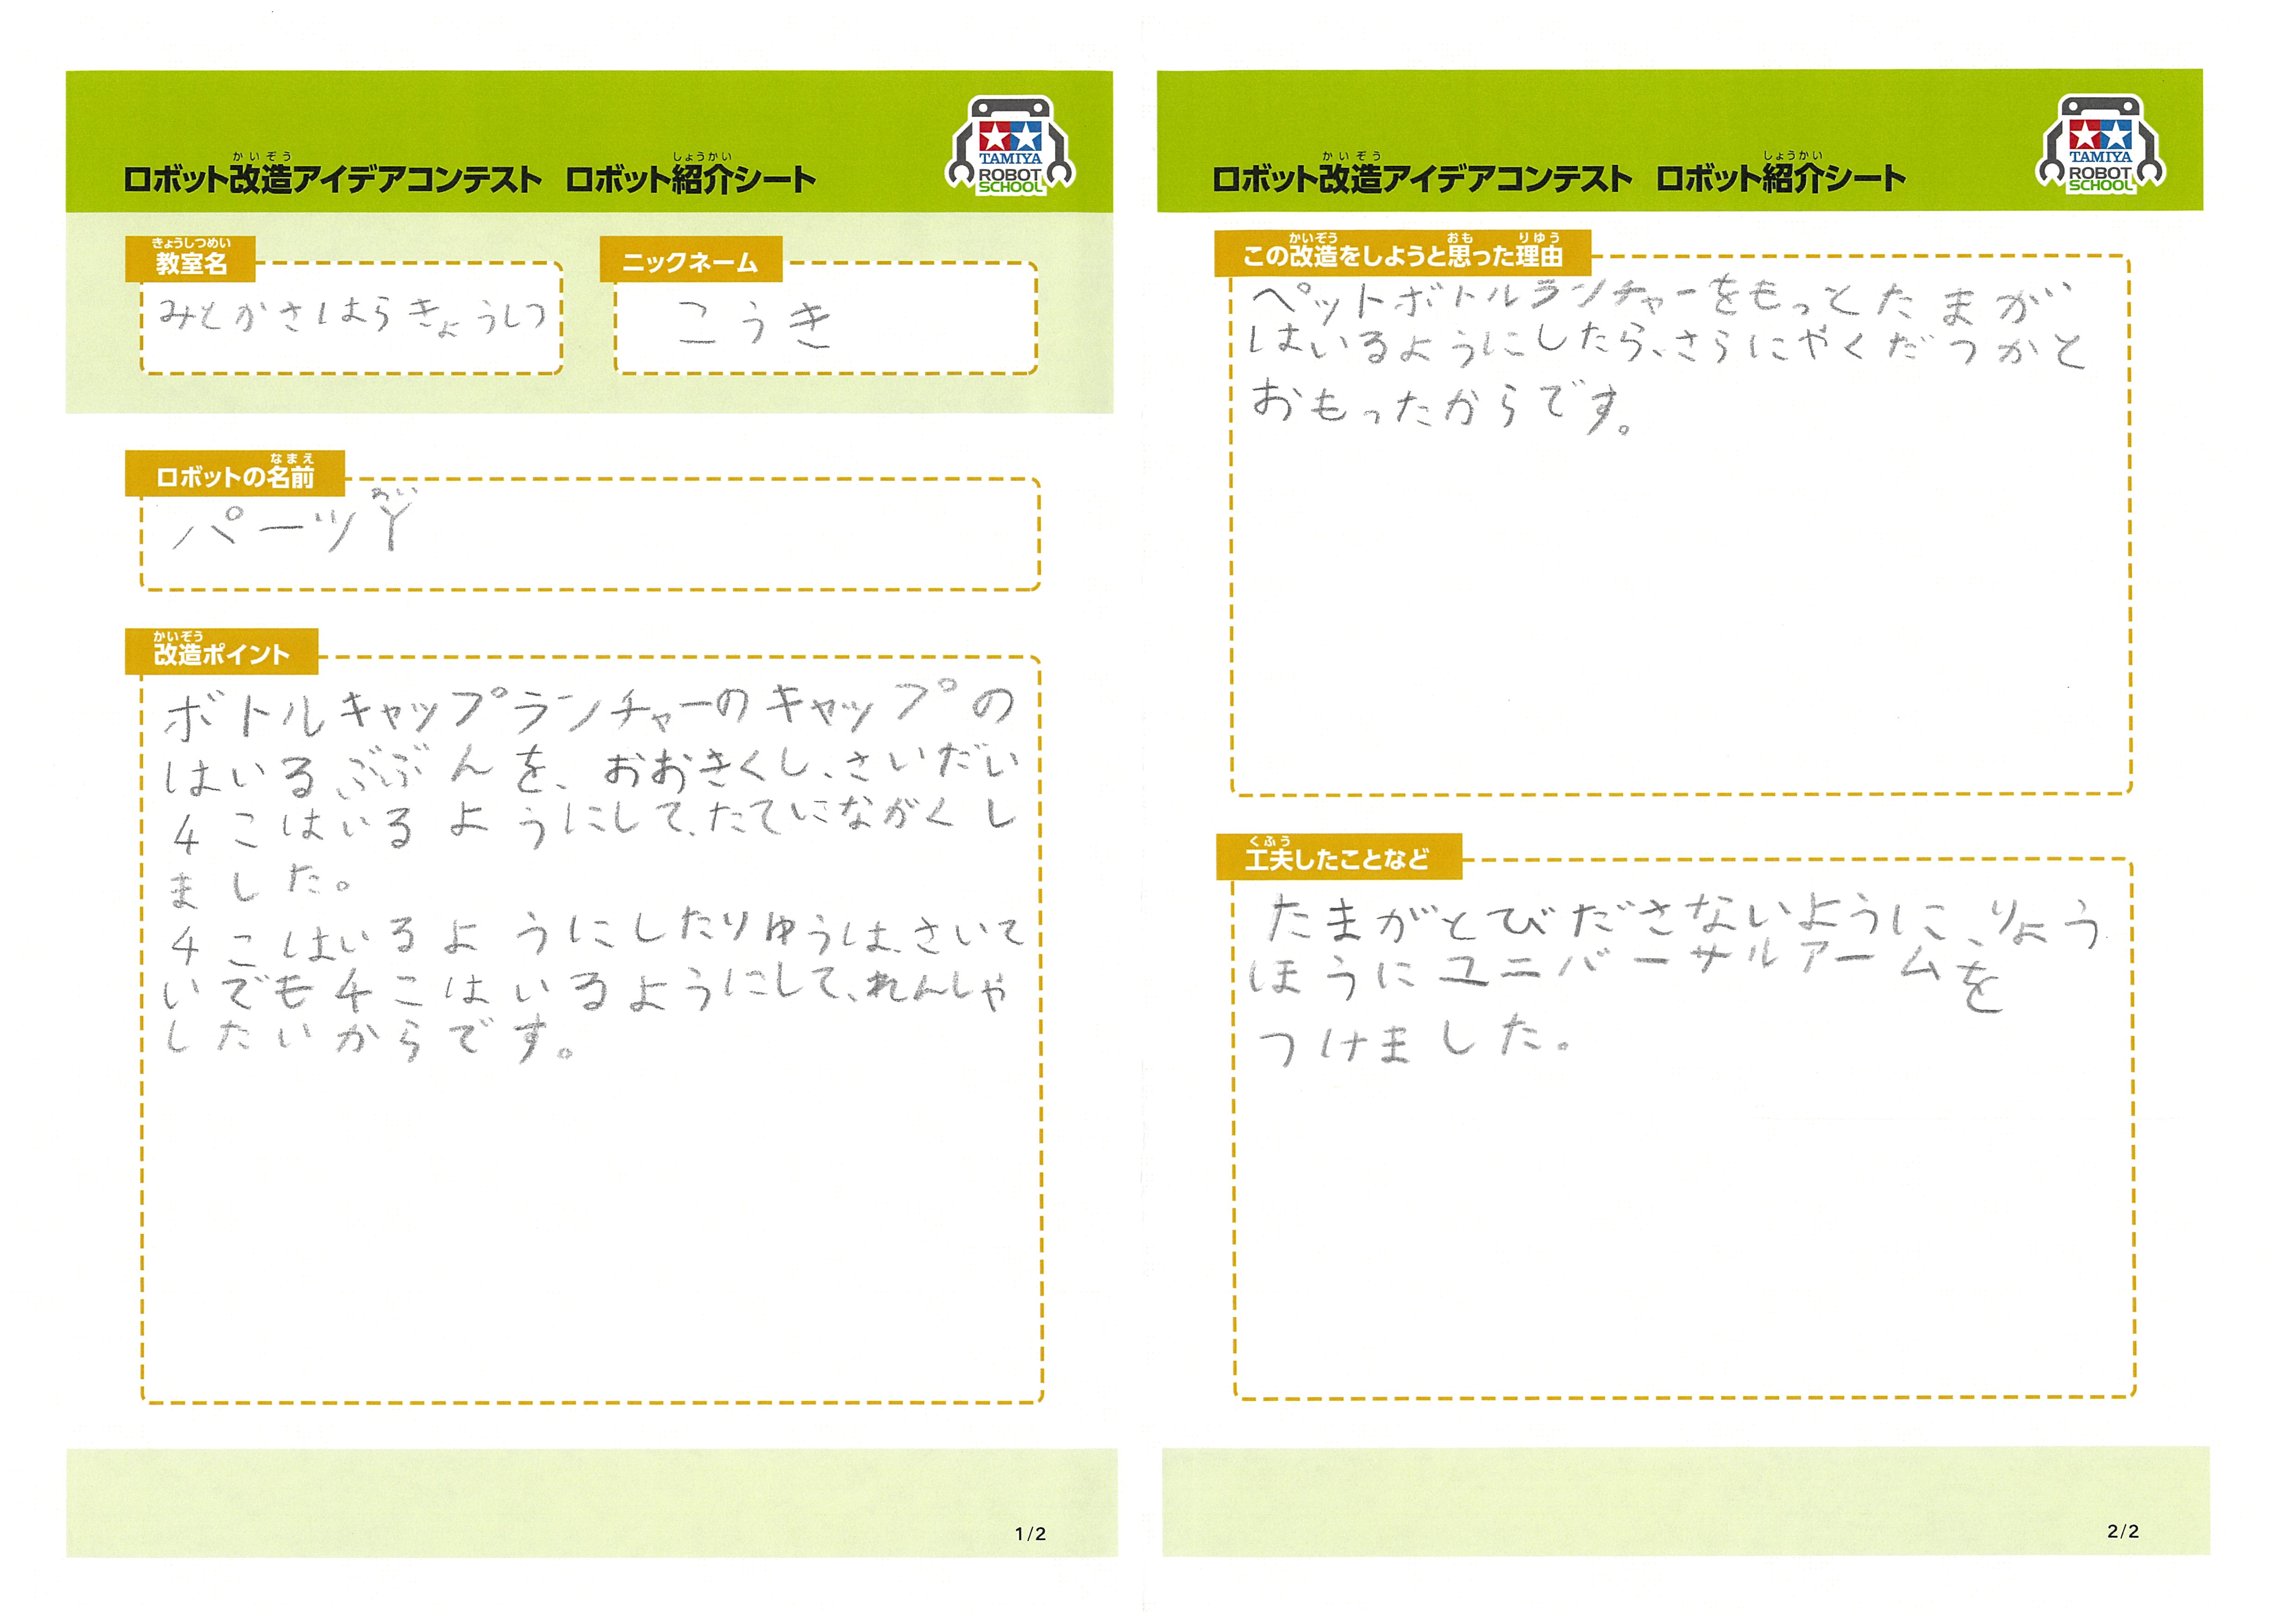 かいぞう しょうかい
ロボット改造アイデアコンテスト ロボット紹介シート
TAMIYA
ROBOT
SCHOOL
きょうしつめい
教室名
みとかさはらきょうしつ
ニックネーム
こうき
なまえ
ロボットの名前
わい
パーツY
かいぞう
改造ポイント
ボトルキャップランチャーのキャップの
はいるぶぶんを、おおきくし、さいだい
4こはいるようにして、たてにながくし
ました。
4こはいるようにしたりゆうは、さいて
いでも4こはいるようにして、れんしゃ
したいからです。
1/2
かいぞう しょうかい
ロボット改造アイデアコンテスト ロボット紹介シート
TAMIYA
ROBOT
SCHOOL
かいぞう おも りゆう
この改造をしようと思った理由
ペットボトルランチャーをもっとたまが
はいるようにしたら、さらにやくだつかと
おもったからです。
くふう
工夫したことなど
たまがとびださないように、りょう
ほうにユニバーサルアームを
つけました。
2/2